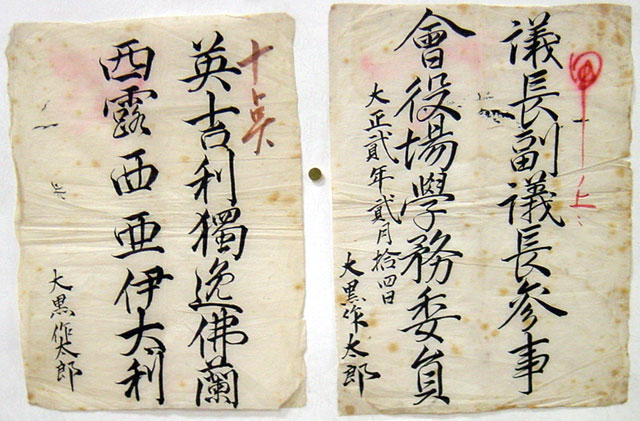 甲ノ上
議長副議長参事
會役場學務委員
大正貳年貳月拾四日
大黒作太郎
十点
英吉利獨逸佛蘭
西露西亜伊太利
大黒作太郎